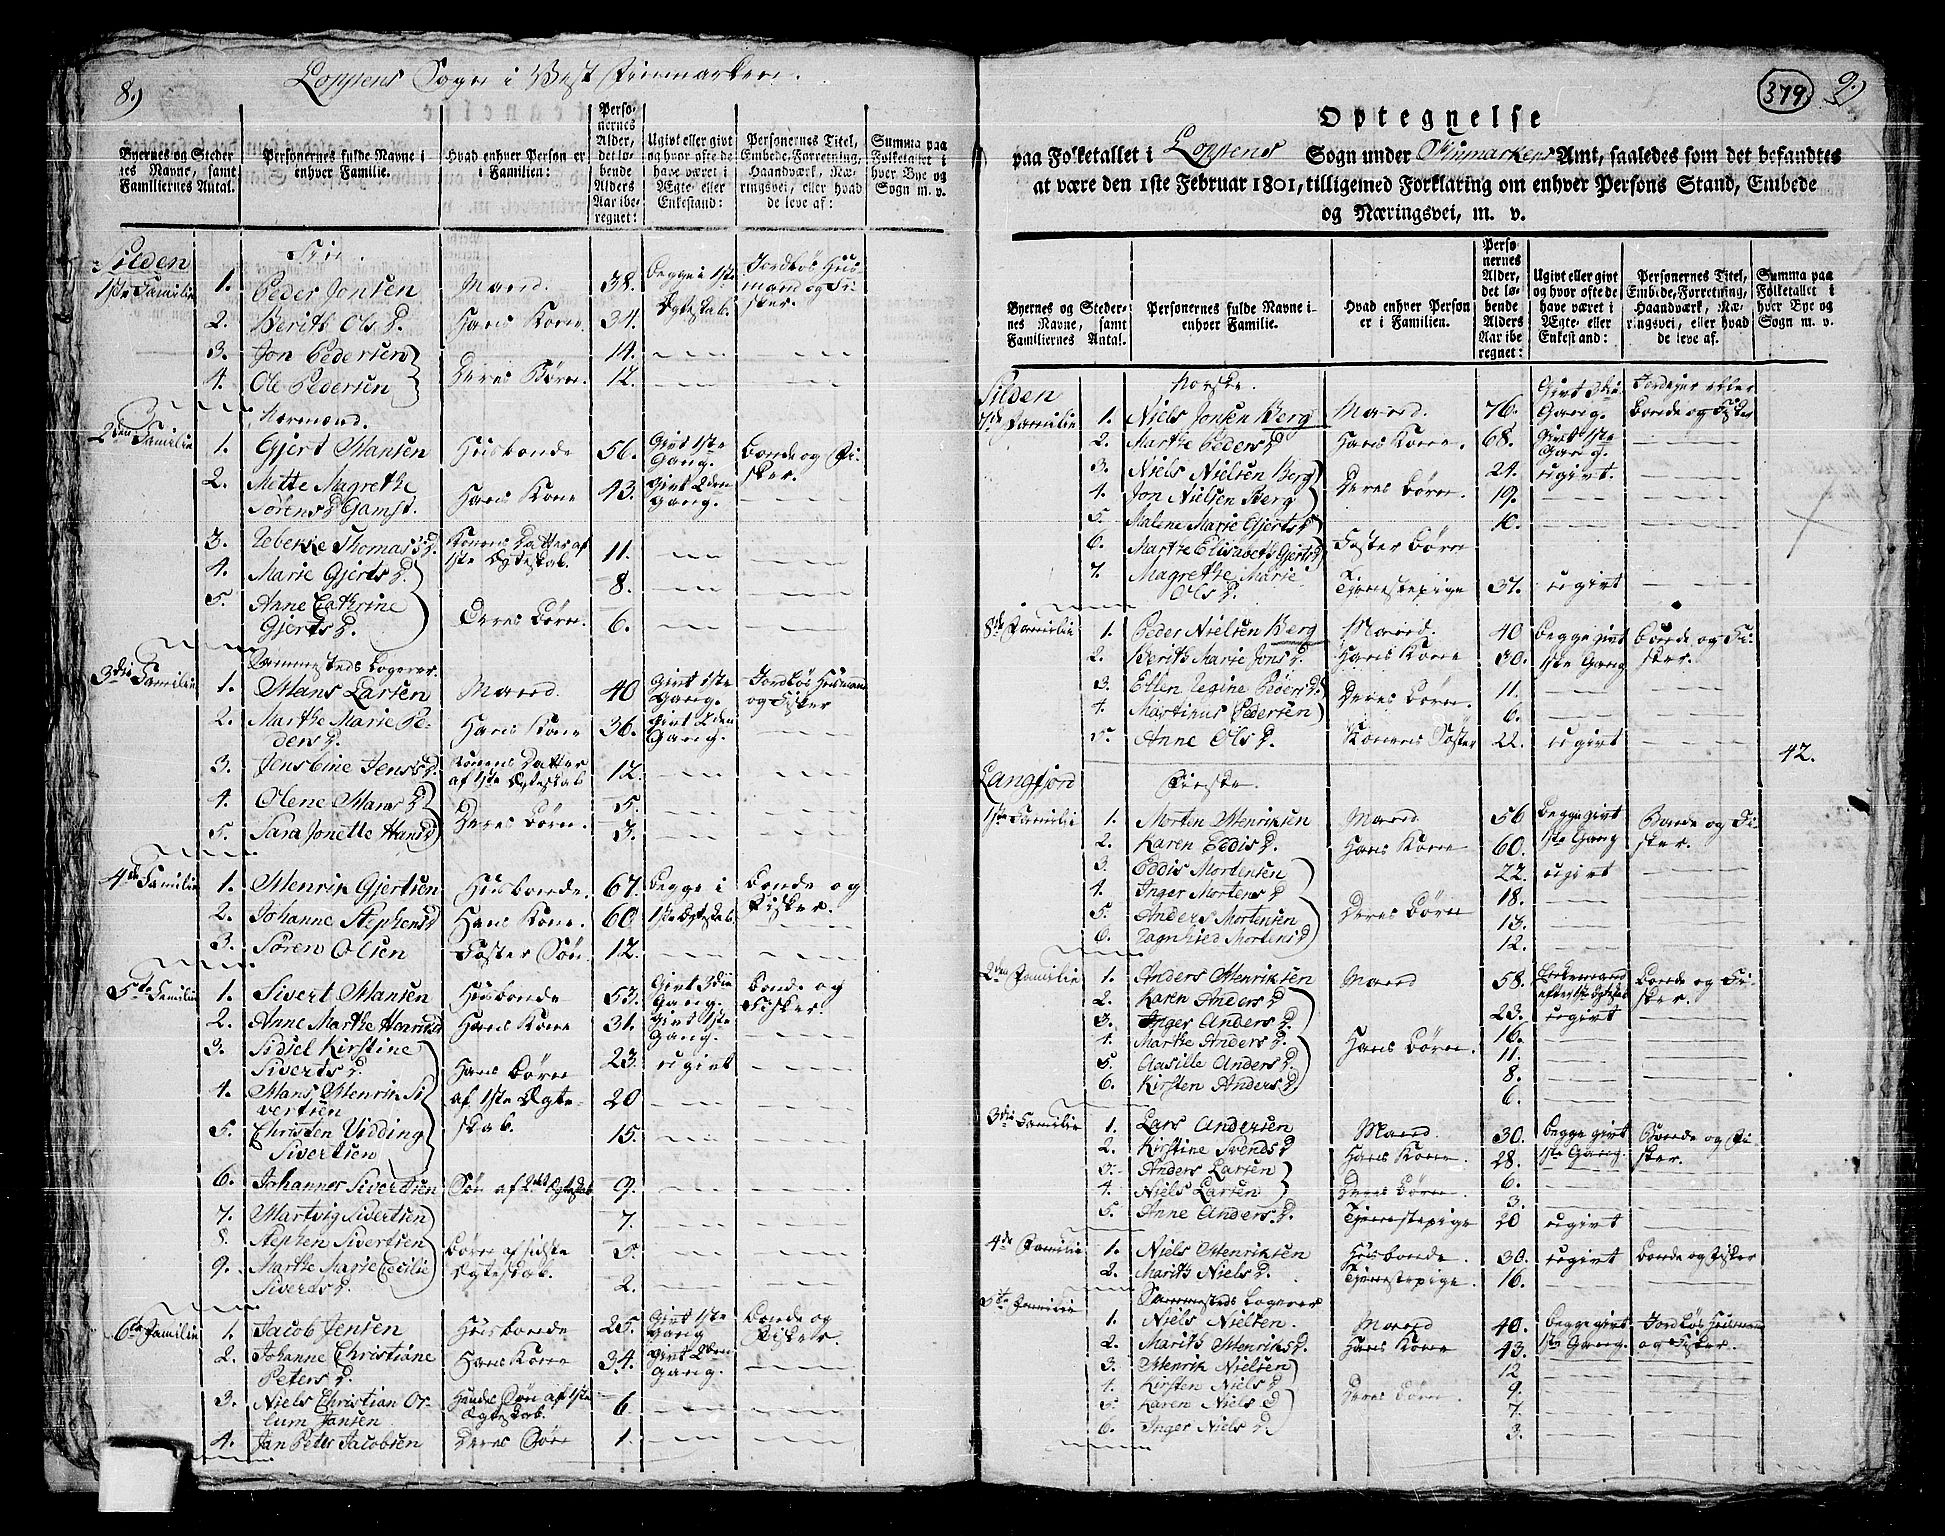 8.) Loppens Sogn i West Finmarken.
Byernes og Steder
nes Navne, samt
Familiernes Antal.
Personernes fulde Navne i
enhver Familie.
Hvad enhver Person er
i Familien:
Perso-
nernes
Alder,
det lø-
bende
Alders
Aar ibe-
regnet:
Ugivt eller givt
og hvor ofte de
have været i
Ægte- eller
Enkestand:
Personernes Titel,
Embede, Forretning,
Haandværk, Næ-
ringsvei, eller hvad
de leve af:
Summa paa
Folketallet i
hver By og
Sogn m. v.
Silden
1ste Familie 1. Peder Jonsen Mand. 38. begge i 1ste Jordløs Huus-
Ægteskab. mand og Fi-
sker.
2. Berith Ols D. Hans Kone 34.
3. Jon Pedersen 14.
4. Ole Pedersen Deres Børn. 12.
Normænd.
2den Familie 1. Gjert Hansen Huusbonde 56. Givt 1ste Gang. bonde og Fi-
sker.
2. Mette Magrethe
Sørens D Gamst. Hans Kone 43. Givt 2den Gang.
3. Rebekke Thomas D. Konens Datter af
1ste Ægteskab. 11.
4. Marie Gjerts D. 8.
5. Anne Cathrine
Gjerts D. Deres Børn. 6.
Sammesteds Logerer
3die Familie 1. Hans Larsen Mand. 40 Givt 1ste Gang. Jordløs Huusmand
og Fisker
2. Marthe Marie Pe-
ders D. Hans Kone 36. Givt 2den Gang.
3. Jensine Jens D. Konens Datter
af 1ste Ægteskab 12.
4. Olene Hans D 5.
5. Sara Jonette Hans D Deres Børn. 3.
4de Familie 1. Henrik Gjertsen Huusbonde 67. begge i bonde og
Fisker.
2. Johanne Stephens D Hans Kone 60 1ste Ægteskab.
3. Søren Olsen Foster Søn 12.
5te Familie 1. Sivert Hansen Huusbonde 53. Givt 3die Gang. bonde og
Fisker.
2. Anne Marthe Henriks D Hans Kone 31. Givt 1ste Gang.
3. Sidsel Kirstine
Siverts D. Hans Børn 23. ugivt
4. Hans Henrik Si-
vertsen af 1ste Ægte- 20
5. Christen Widding
Sivertsen skab. 15.
6. Johannes Sivertsen Søn af 2det Ægteskab 9.
7. Hartvig Sivertsen 7.
8. Stephen Sivertsen Børn af sidste 5.
9. Marthe Marie Cecilie
Siverts D. Ægteskab. 2.
6te Familie 1. Jacob Jensen Huusbonde 25. Givt 1ste Gang bonde og
Fisker.
2. Johanne Christiane
Peters D. Hans Kone 34. Givt 2den Gang.
3. Niels Christian Or-
lum Jansen Hendes Søn af 1ste
Ægteskab. 6
4. Jan Peter Jacobsen Deres Søn 1.
379. 9.)
Optegnelse
paa Folketallet i Loppens Sogn under Finmarkens Amt, saaledes som det befandtes
at være den 1ste Februar 1801, tilligemed Forklaring om enhver Persons Stand, Embede
og Næringsvei, m. v.
Byernes og Steder-
nes Navne, samt
Familiernes Antal.
Personernes fulde Navne i-
enhver Familie.
Hvad enhver Person
er i Familien.
Perso
nernes
Alder,
det lø-
bende
Alders
Aar ibe
regnet:
Ugivt eller givt
og hvor ofte de
have været i
Ægte- eller
Enkestand:
Personernes Titel,
Embede, Forretning,
Haandværk, Næ-
ringsvei, eller hvad
de leve af.
Summa paa
Folketallet i
hver By og
Sogn m. v.
Silden Norske.
7de Familie 1. Niels Jonsen Berg Mand. 76. Givt Gang. bonde og Fisker
2. Marthe Peders D. Hans Kone. 68. Givt 1ste Gang.
3. Niels Nielsen Berg 24. ugivt.
4. Jon Nielsen Berg Deres børn. 19.
5. Malene Marie Gjerts D 10.
6. Marthe Elisabeth Gjerts D Foster børn
7. Magrethe Marie
Ols D. Tjenestepige 37. ugivt
8de Familie 1. Peder Nielsen Berg Mand. 40 begge givt bonde og Fi-
sker.
2. Berith Marie Jons D. Hans Kone 30. 1ste Gang
3. Ellen Regine Peders D. Deres Børn. 11.
4. Martinus Pedersen 6.
5. Anne Ols D. Konens Søster 22. ugivt
42.
Langfjord Finske.
1ste Familie 1. Morten Henriksen Mand 56 begge givt Bonde og Fi-
sker.
2. Karen Peddis D. Hans Kone 60. 1ste Gang
3. Peddis Mortensen 22. ugivt
4. Inger Mortens D. 18.
5. Anders Mortensen Deres børn 13.
6. Ragnhled Mortens D 12.
2den Familie 1. Anders Henriksen Mand 58. Enkemand
efter 1ste Ægteskab bonde og Fi-
sker.
2. Karen Anders D 23. ugivt
3. Inger Anders D. 16.
4. Marthe Anders D. Hans børn. 11.
5. Aasille Anders D. 8.
6. Kirsten Anders D 6.
3die Familie 1. Lars Andersen Mand. 30. begge givt Bonde og Fi-
sker.
2. Kirstine Svends D Hans Kone 28. 1ste Gang.
3. Anders Larsen 6.
4. Niels Larsen Deres børn. 3.
5. Anne Anders D. Tjenestepige 20 ugivt
4de Familie 1. Niels Henriksen Huusbonde 30. ugivt bonde og Fisker
2. Marith Niels D. Tjenestepige. 16.
5te Familie Sammesteds Logerer
1. Niels Nielsen. Mand 40. begge givt Jordløs Huusmand
og Fisker.
2. Marith Henriks D. Hans Kone 43. 1ste Gang.
3. Henrik Nielsen 12
4. Kirsten Niels D Deres børn 9.
5. Karen Niels D 7.
6. Inger Niels D 3.